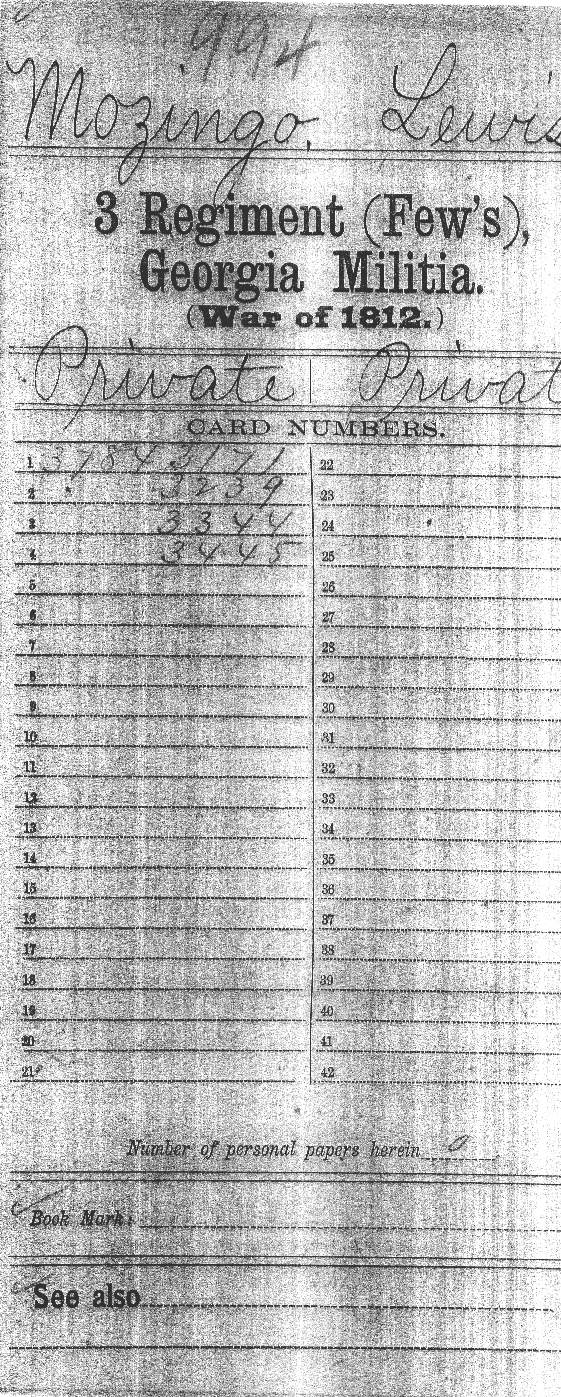 994
Mozingo, Lewis
3 Regiment (Few's),
Georgia Militia.
(War of 1812.)
Private | Privat
CARD NUMBERS.
1 3784 3171 22
2 3239 23
3 3344 24
4 3445 25
5 26
6 27
7 28
8 29
9 30
10 31
11 32
12 33
13 34
14 35
15 36
16 37
17 38
18 39
19 40
20 41
21 42
Number of personal papers herein 0
Book Mark:
See also